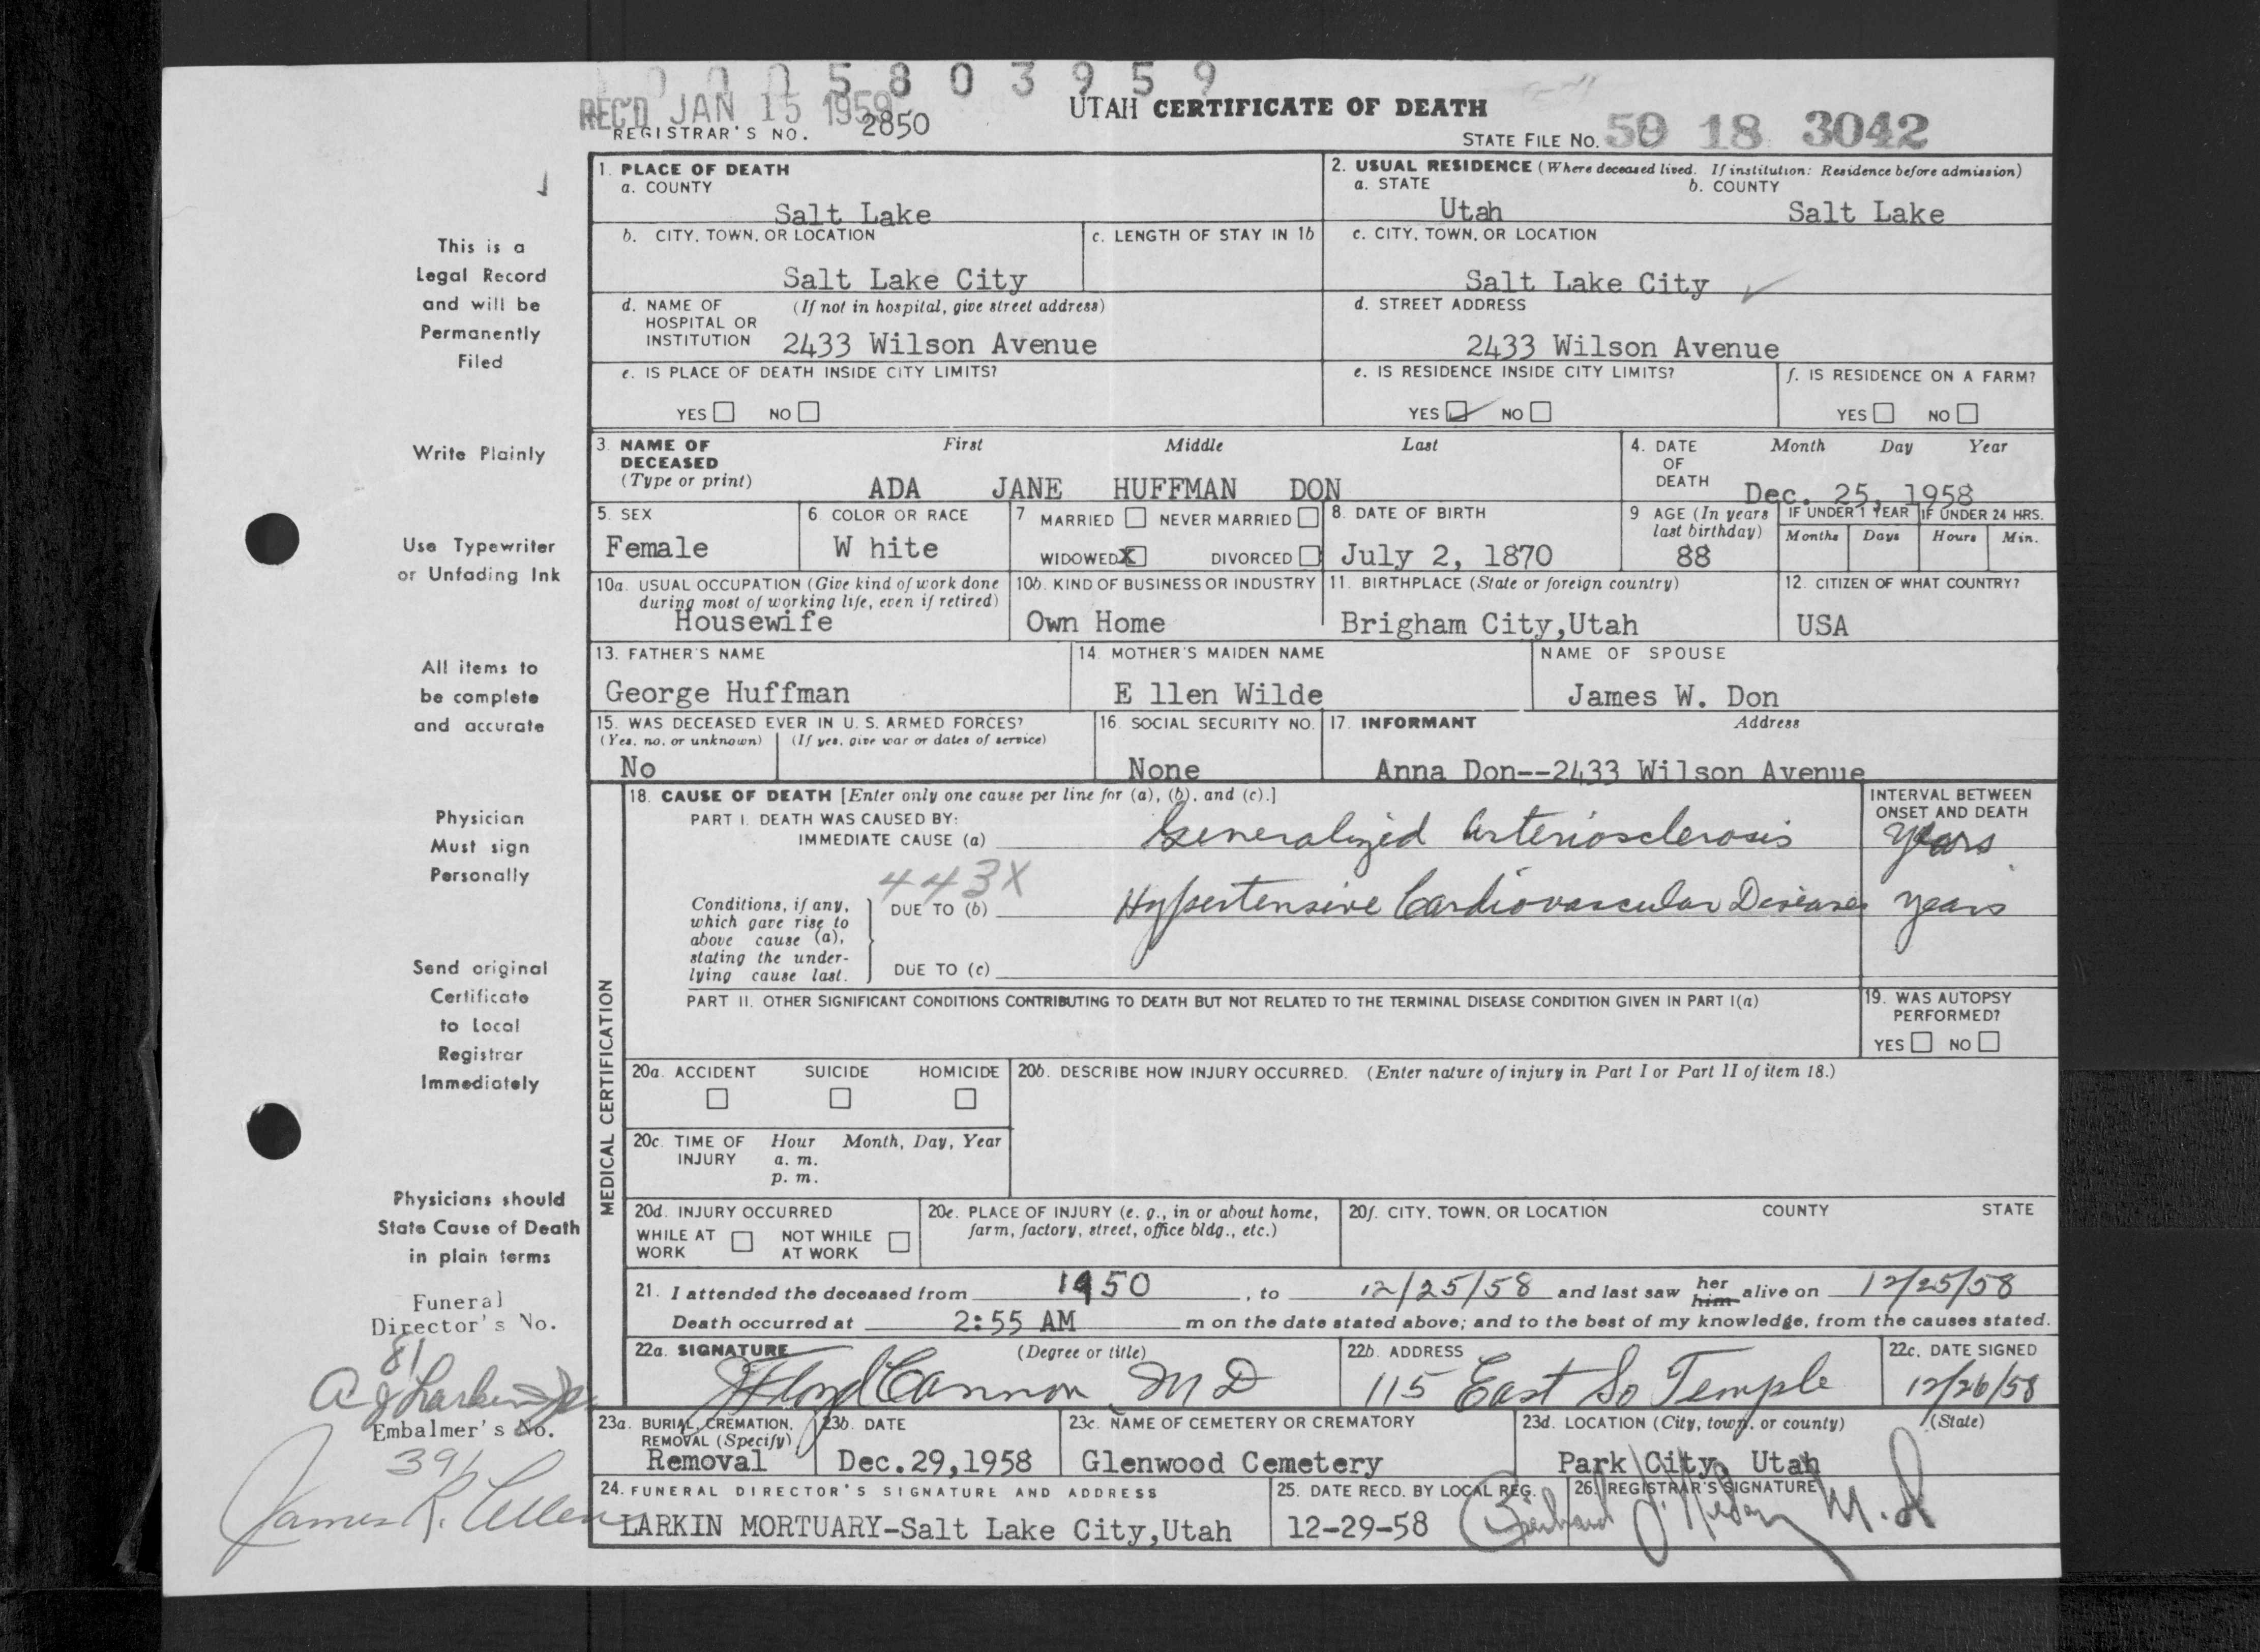 5 8 0 3 9 5 9
REC'D JAN 15 1959
REGISTRAR'S NO. 2850
UTAH CERTIFICATE OF DEATH
STATE FILE NO. 18 3042
This is a
Legal Record
and will be
Permanently
Filed
Write Plainly
Use Typewriter
or Unfading Ink
All items to
be complete
and accurate
Physician
Must sign
Personally
Send original
Certificate
to Local
Registrar
Immediately
Physicians should
State Cause of Death
in plain terms
Funeral
Director's No.
81
Embalmer's No.
391
1. PLACE OF DEATH
a. COUNTY
Salt Lake
2. USUAL RESIDENCE (Where deceased lived. If institution: Residence before admission)
a. STATE b. COUNTY
Utah Salt Lake
b. CITY, TOWN, OR LOCATION
Salt Lake City
c. LENGTH OF STAY IN 1b
c. CITY, TOWN, OR LOCATION
Salt Lake City
d. NAME OF (If not in hospital, give street address)
HOSPITAL OR
INSTITUTION 2433 Wilson Avenue
d. STREET ADDRESS
2433 Wilson Avenue
e. IS PLACE OF DEATH INSIDE CITY LIMITS?
YES NO
e. IS RESIDENCE INSIDE CITY LIMITS?
YES NO
f. IS RESIDENCE ON A FARM?
YES NO
3. NAME OF First Middle Last
DECEASED
(Type or print) ADA JANE HUFFMAN DON
4. DATE Month Day Year
OF
DEATH Dec. 25, 1958
5. SEX
Female
6. COLOR OR RACE
W hite
7 MARRIED NEVER MARRIED
WIDOWED X DIVORCED
8. DATE OF BIRTH
July 2, 1870
9 AGE (In years
last birthday)
88
IF UNDER 1 YEAR IF UNDER 24 HRS.
Months Days Hours Min.
10a. USUAL OCCUPATION (Give kind of work done
during most of working life, even if retired)
Housewife
10b. KIND OF BUSINESS OR INDUSTRY
Own Home
11. BIRTHPLACE (State or foreign country)
Brigham City,Utah
12. CITIZEN OF WHAT COUNTRY?
USA
13. FATHER'S NAME
George Huffman
14. MOTHER'S MAIDEN NAME
E llen Wilde
NAME OF SPOUSE
James W. Don
15. WAS DECEASED EVER IN U. S. ARMED FORCES?
(Yes, no, or unknown) (If yes, give war or dates of service)
No
16. SOCIAL SECURITY NO.
None
17. INFORMANT Address
Anna Don--2433 Wilson Avenue
MEDICAL CERTIFICATION
18. CAUSE OF DEATH [Enter only one cause per line for (a), (b), and (c).]
INTERVAL BETWEEN
ONSET AND DEATH
PART I. DEATH WAS CAUSED BY:
IMMEDIATE CAUSE (a) Generalized Arteriosclerosis Years
443X
Conditions, if any,
which gave rise to
above cause (a),
stating the under-
lying cause last.
DUE TO (b) Hypertensive Cardiovascular Disease years
DUE TO (c)
PART II. OTHER SIGNIFICANT CONDITIONS CONTRIBUTING TO DEATH BUT NOT RELATED TO THE TERMINAL DISEASE CONDITION GIVEN IN PART I(a)
19. WAS AUTOPSY
PERFORMED?
YES NO
20a. ACCIDENT SUICIDE HOMICIDE
20b. DESCRIBE HOW INJURY OCCURRED. (Enter nature of injury in Part I or Part II of item 18.)
20c. TIME OF Hour Month, Day, Year
INJURY a. m.
p. m.
20d. INJURY OCCURRED
WHILE AT NOT WHILE
WORK AT WORK
20e. PLACE OF INJURY (e. g., in or about home,
farm, factory, street, office bldg., etc.)
20f. CITY, TOWN, OR LOCATION COUNTY STATE
21. I attended the deceased from 1950, to 12/25/58 and last saw her him alive on 12/25/58
Death occurred at 2:55 AM m on the date stated above; and to the best of my knowledge, from the causes stated.
22a. SIGNATURE (Degree or title)
Floyd Cannon MD
22b. ADDRESS
115 East So Temple
22c. DATE SIGNED
12/26/58
23a. BURIAL, CREMATION,
REMOVAL (Specify)
Removal
23b. DATE
Dec.29,1958
23c. NAME OF CEMETERY OR CREMATORY
Glenwood Cemetery
23d. LOCATION (City, town, or county) (State)
Park City, Utah
24. FUNERAL DIRECTOR'S SIGNATURE AND ADDRESS
LARKIN MORTUARY-Salt Lake City,Utah
25. DATE RECD. BY LOCAL REG.
12-29-58
26. REGISTRAR'S SIGNATURE
M.D